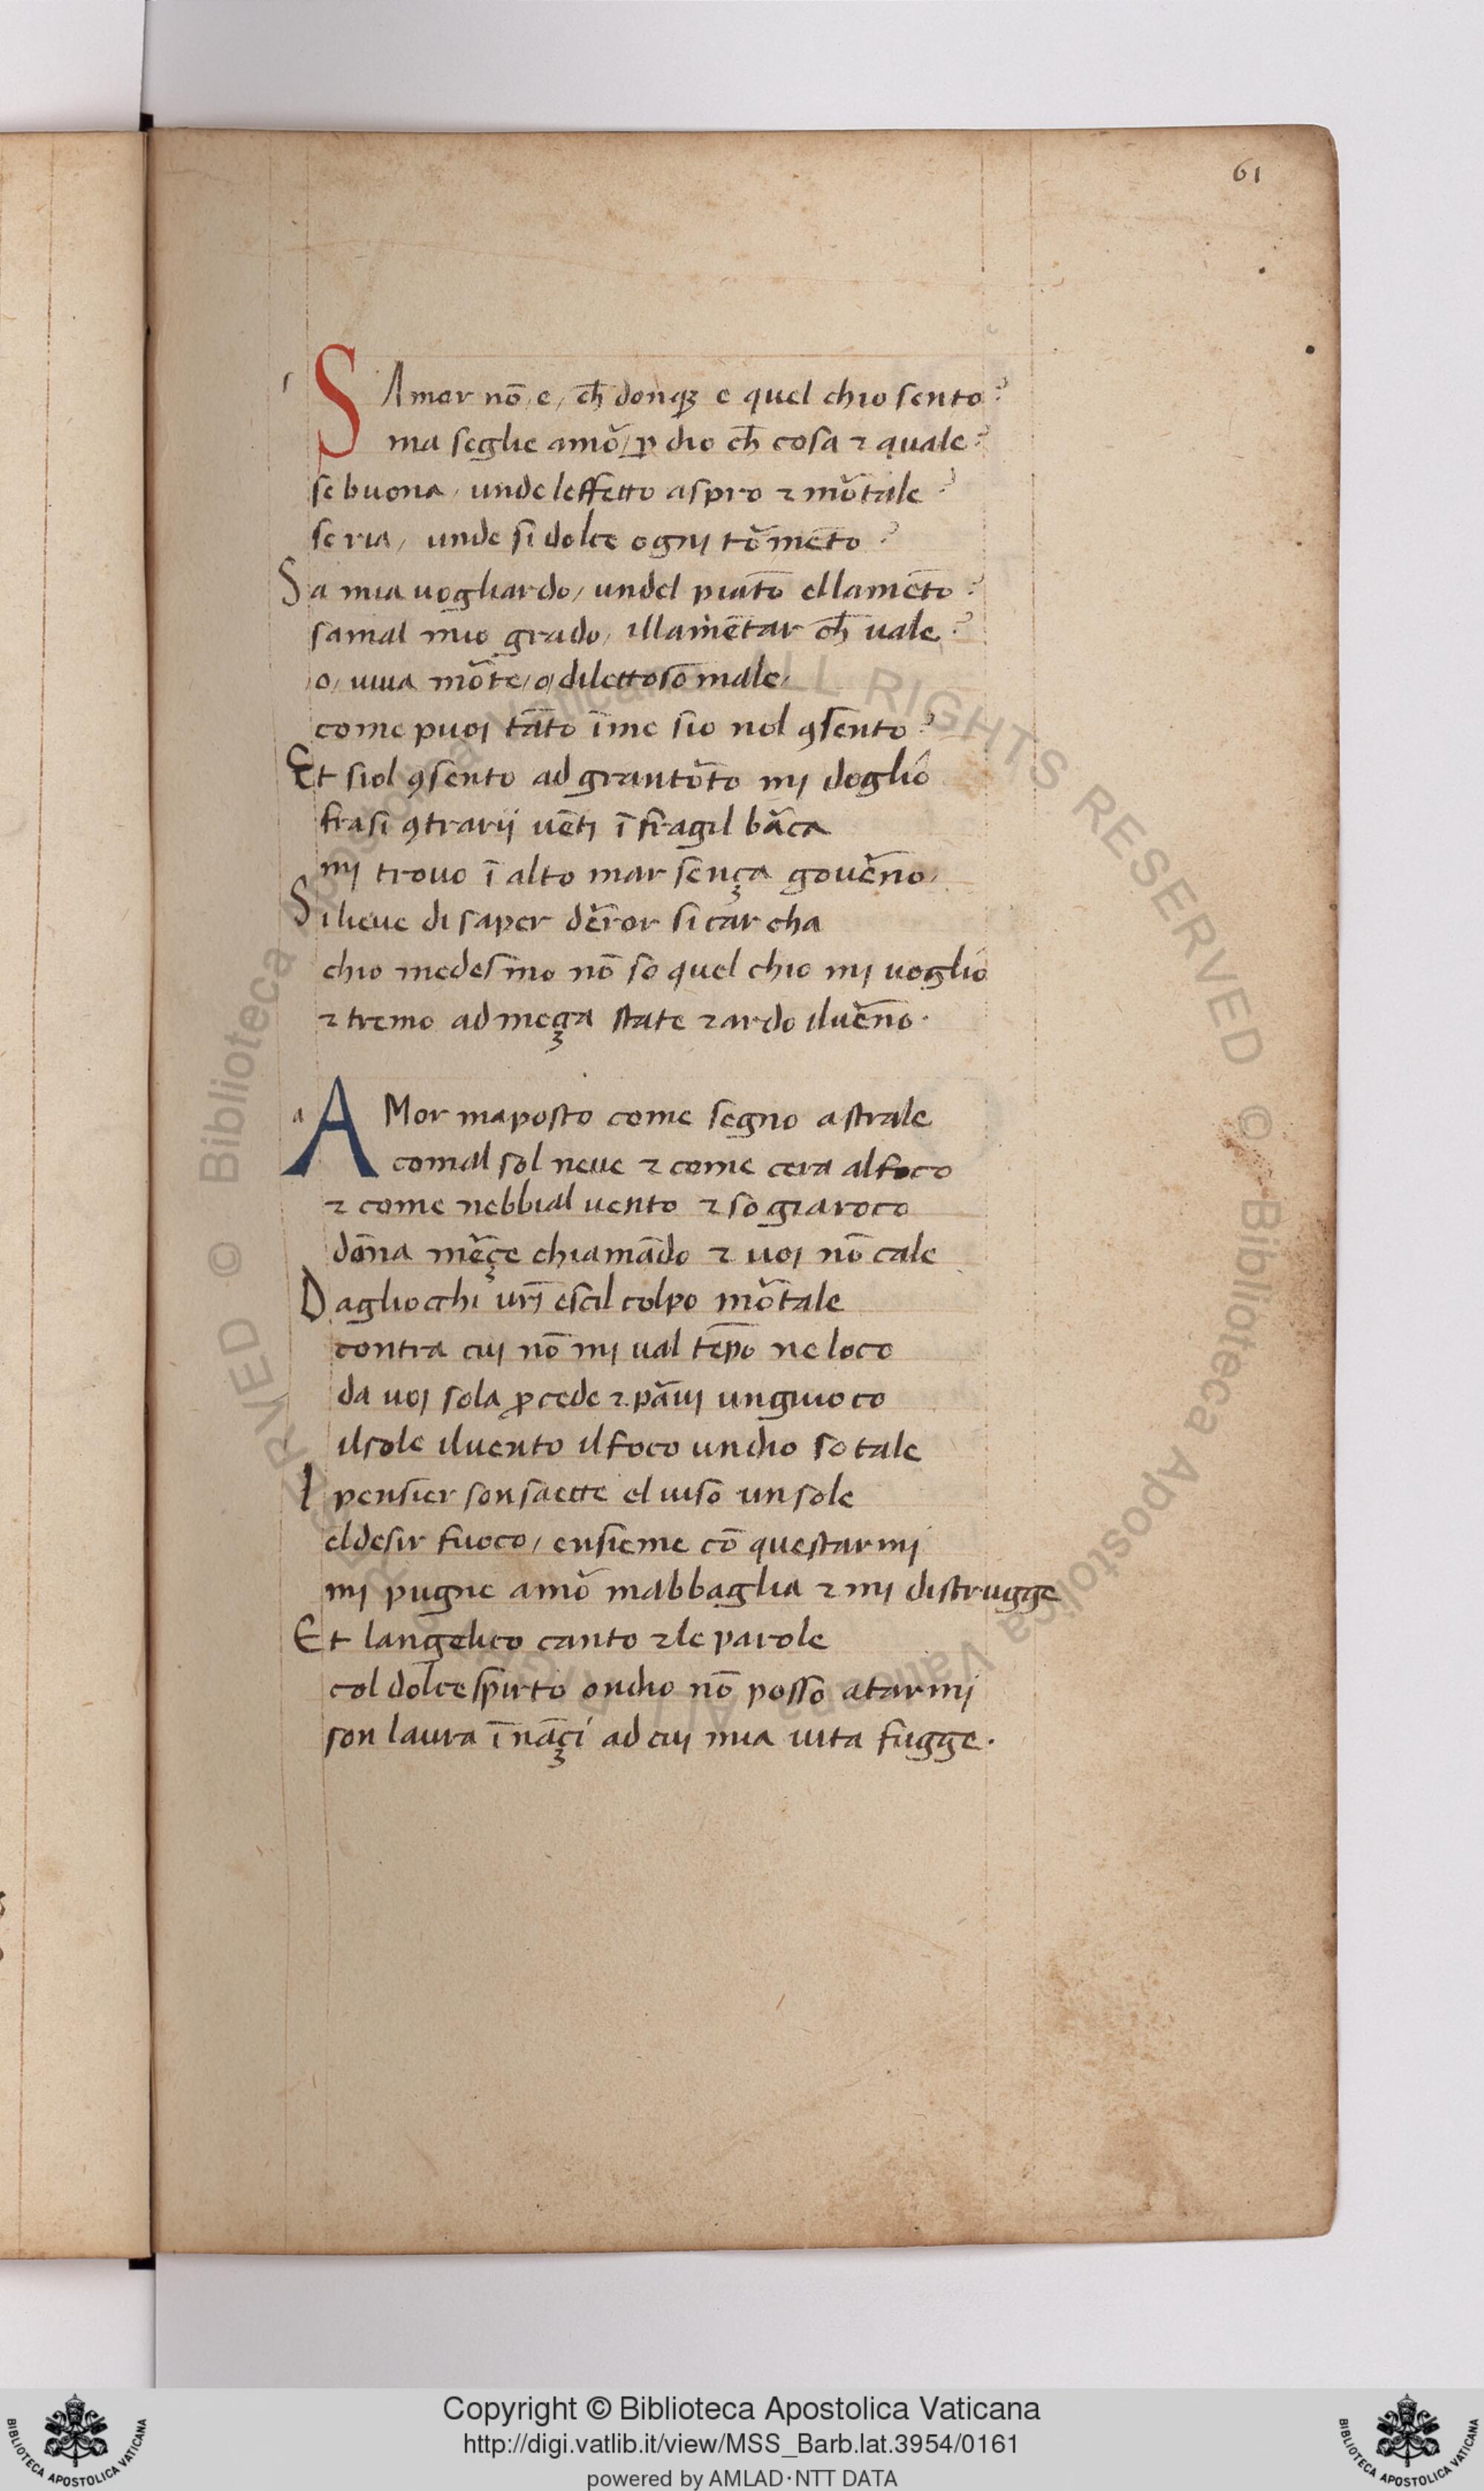 61
S Amor nō, e, ch̄ donqꝫ e quel chio sento?
ma seglie amō, ꝑ dio ch̄ cosa ⁊ quale?
se buona, unde leffetto aspro ⁊ mōtale?
se ria, unde si dolce ogni tōmēto?
Sa mia uogliardo, undel piātō ellamēto?
samal mio grado, illamētar ch̄ uale?
o, uiua mōte, o, dilettoso male,
come puoi tāto īme sio nol ꝯsento?
Et siol ꝯsento ad grantōto mi doglio
frasi ꝯtrarij uēti ī fragil bāca
mi trouo ī alto mar sença gouēno,
Si lieue di saper dēror si carcha
chio medesimo nō so quel chio mi uoglio
⁊ tremo ad meça state ⁊ ardo iluēno.
a
A Mor maposto come segno astrale
comal sol neue ⁊ come cera alfoco
⁊ come nebbial uento ⁊ so gia roco
dōna mēçe chiamādo ⁊ uoi nō cale
Dagliocchi urī escil colpo mōtale
contra cui nō mi ual tēpo ne loco
da uoi sola ꝓcede ⁊ pāui ungiuoco
ilsole iluento ilfoco undio so tale
I pensier son saette el uiso un sole
eldesir fuoco, ensieme cō questarmi
mi pugne amō mabbaglia ⁊ mi distrugge
Et langelico canto ⁊ le parole
col dolce spirto ondio nō posso atarmi
son laura īnāçi ad cui mia uita fugge.
© Biblioteca Apostolica Vaticana ALL RIGHTS RESERVED © Biblioteca Apostolica Vaticana ALL RIGHTS RESERVED
Copyright © Biblioteca Apostolica Vaticana
http://digi.vatlib.it/view/MSS_Barb.lat.3954/0161
powered by AMLAD·NTT DATA
BIBLIOTECA APOSTOLICA VATICANA
BIBLIOTECA APOSTOLICA VATICANA